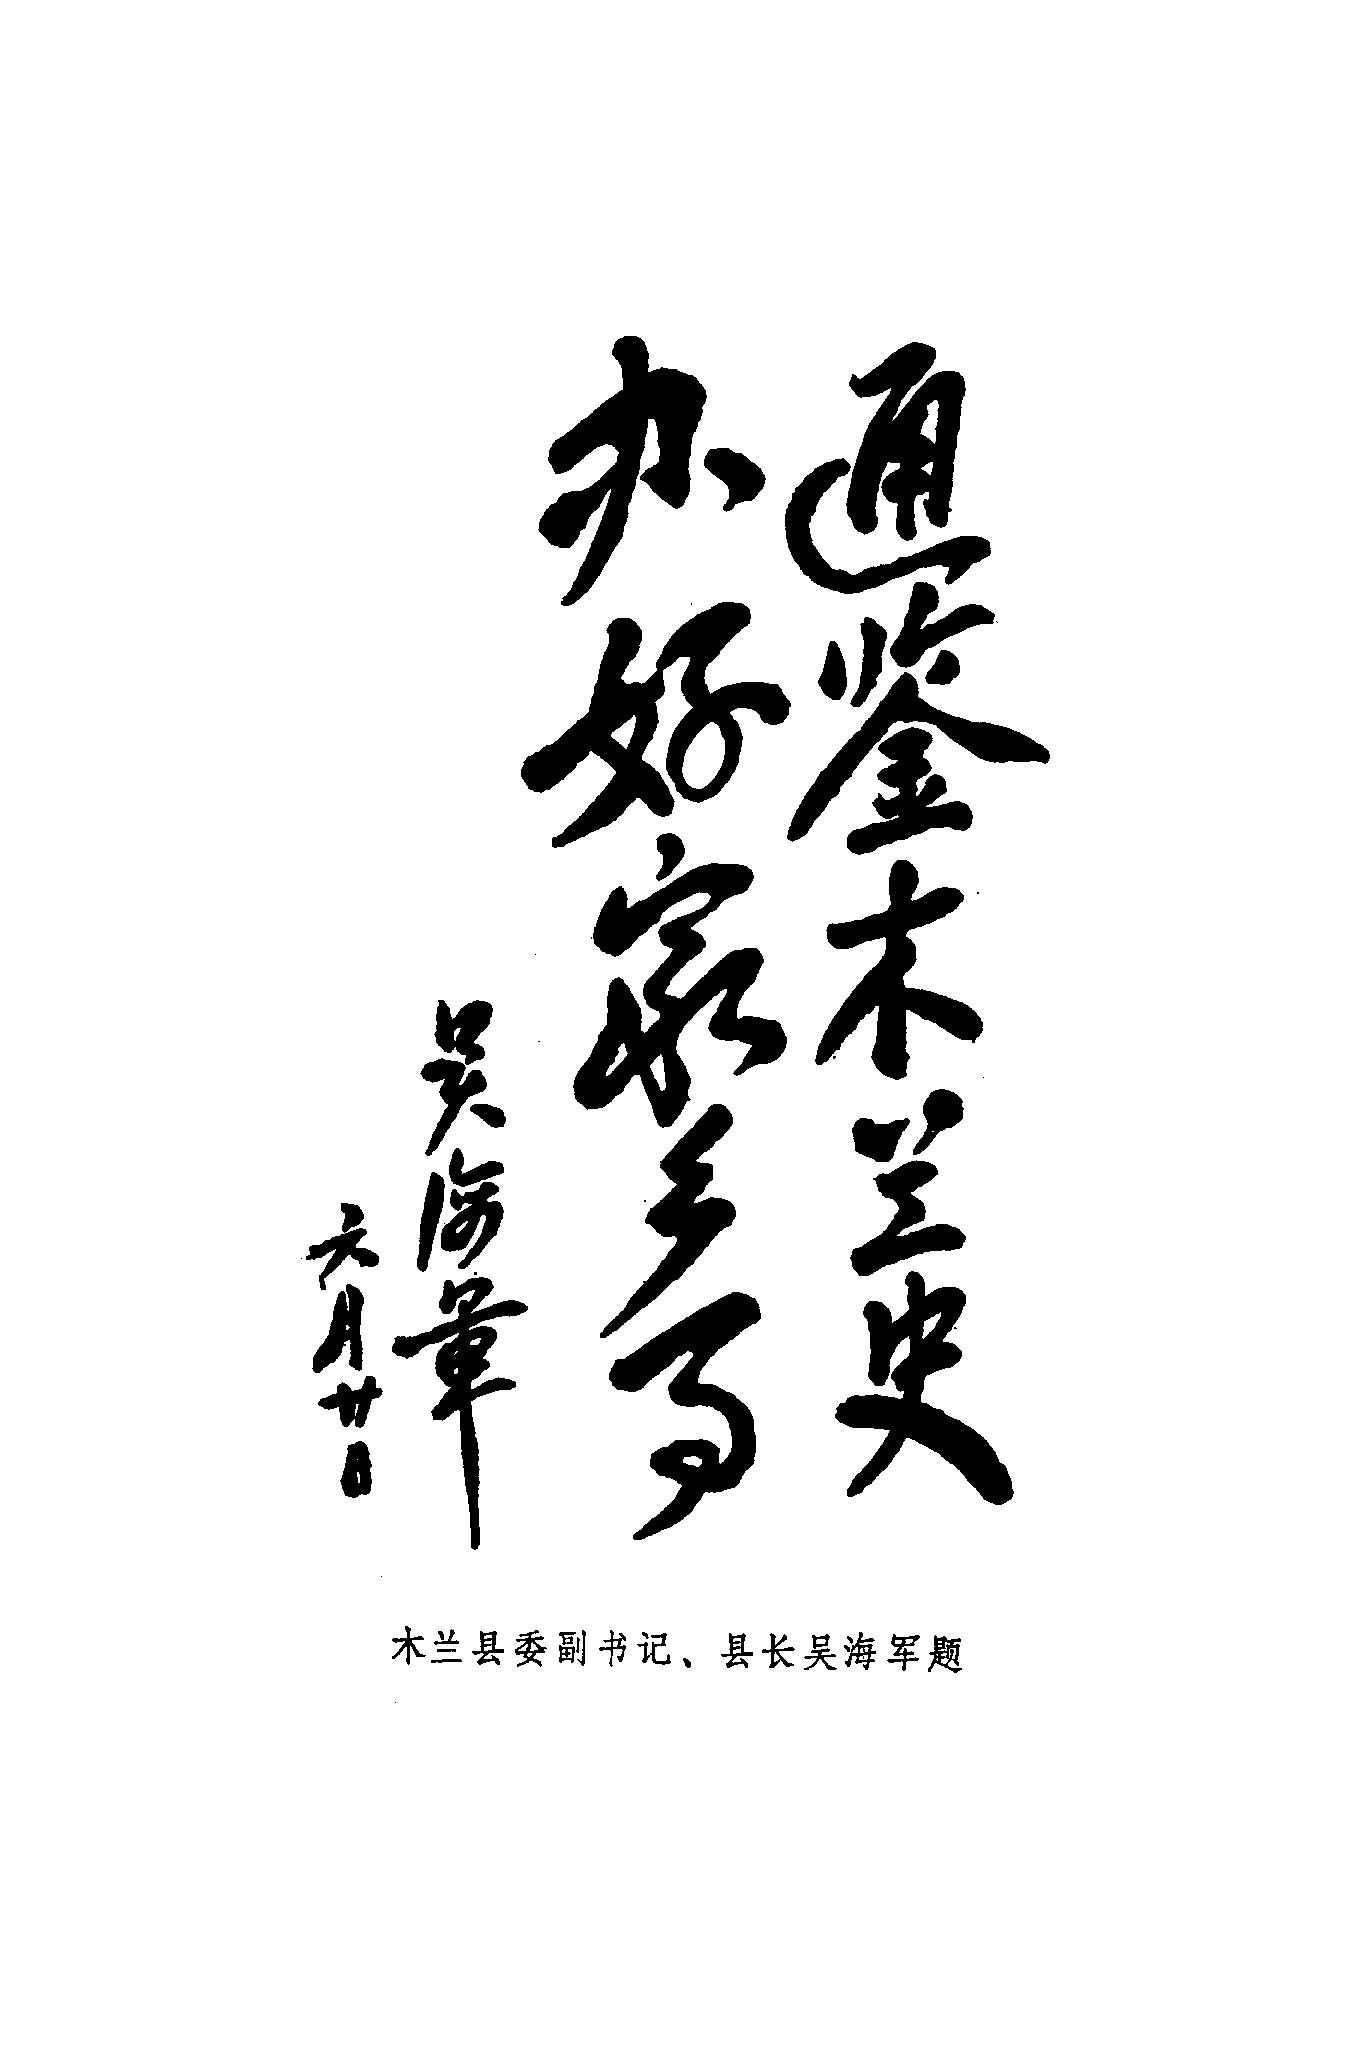 通鉴木兰史
办好家乡事
吴海军
六月廿日
木兰县委副书记、县长吴海军题